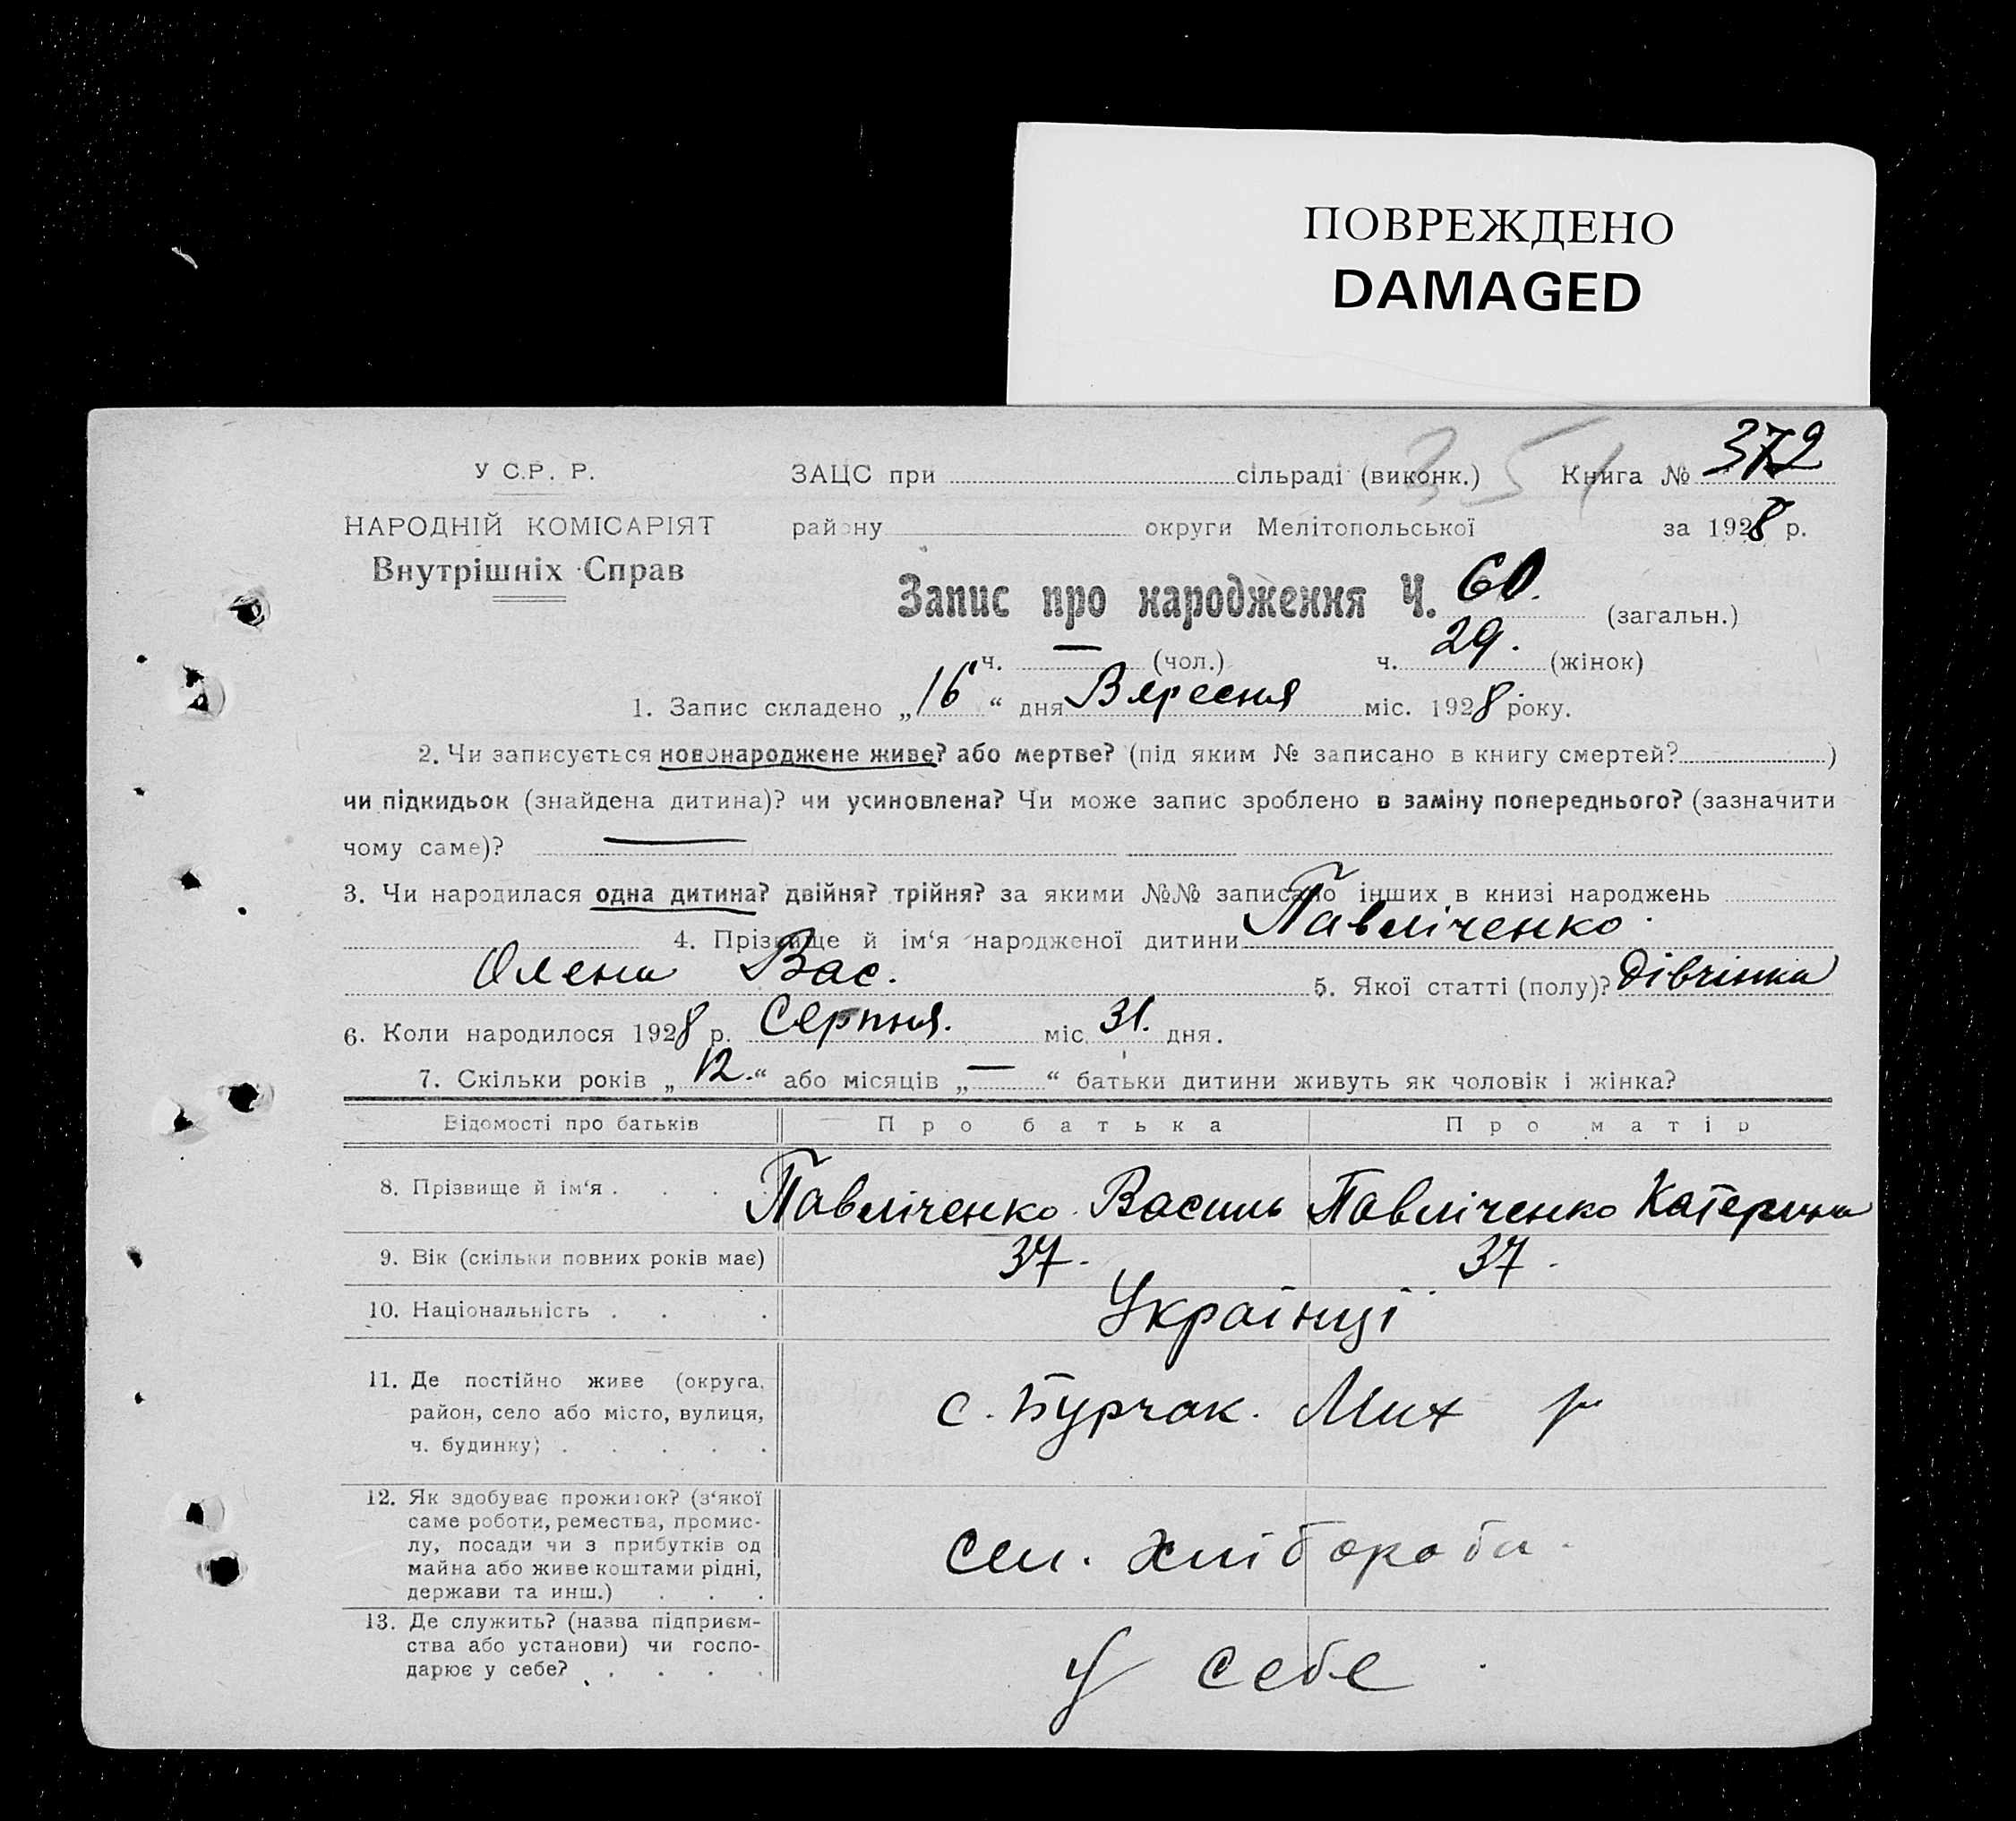 ПОВРЕЖДЕНО
DAMAGED
351
У С.Р. Р. ЗАЦС при сільраді (виконк.) Книга № 372
НАРОДНІЙ КОМІСАРІЯТ району округи Мелітопольської за 1928 р.
Внутрішніх Справ
Запис про народження Ч. 60. (загальн.)
ч. — (чол.) ч. 29. (жінок)
1. Запис складено „16“ дня Вересня міс. 1928 року.
2. Чи записується новонароджене живе? або мертве? (під яким № записано в книгу смертей? )
чи підкидьок (знайдена дитина)? чи усиновлена? Чи може запис зроблено в заміну попереднього? (зазначити
чому саме)? —
3. Чи народилася одна дитина? двійня? трійня? за якими №№ записано інших в книзі народжень
4. Прізвище й ім‘я народженої дитини Павліченко
Олена Вас. 5. Якої статті (полу)? Дівчинка
6. Коли народилося 1928 р. Серпня. міс. 31. дня.
7. Скільки років „12.“ або місяців „—“ батьки дитини живуть як чоловік і жінка?
Відомості про батьків Про батька Про матір
8. Прізвище й ім‘я . . . . Павліченко Василь Павліченко Катерина
9. Вік (скільки повних років має) 37. 37.
10. Національність . . . . Українці
11. Де постійно живе (округа,
район, село або місто, вулиця,
ч. будинку) . . . . . с. Бурчак. Мих р
12. Як здобуває прожиток? (з‘якої
саме роботи, ремества, промис-
лу, посади чи з прибутків од
майна або живе коштами рідні,
держави та инш.) . . . сел. хлібороби.
13. Де служить? (назва підприєм-
ства або установи) чи госпо-
дарює у себе? . . . . У себе.